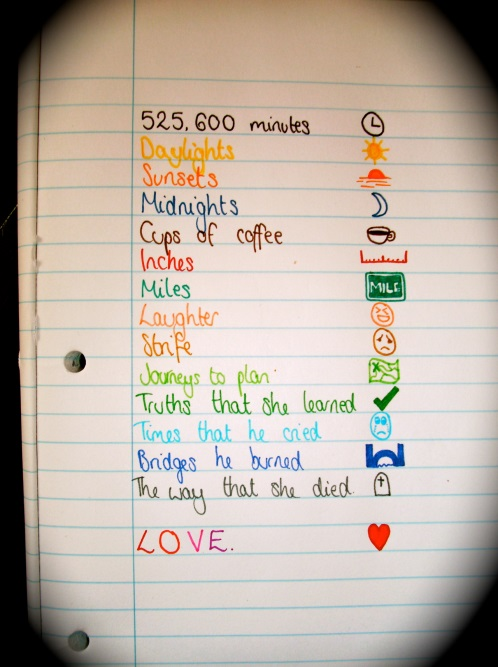 525,600 minutes
Daylights
Sunsets
Midnights
Cups of coffee
Inches
Miles MILE
Laughter
Strife
Journeys to plan
Truths that she learned
Times that he cried
Bridges he burned
The way that she died.
LOVE.